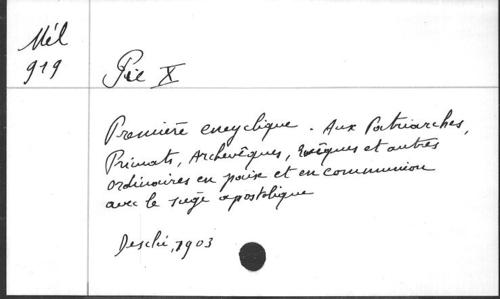 Mél
919
Pie X
Première encyclique. Aux Patriarches,
Primats, Archevêques, Evêques et autres
ordinaires en paix et en communion
avec le siège apostolique
Desclé, 1903